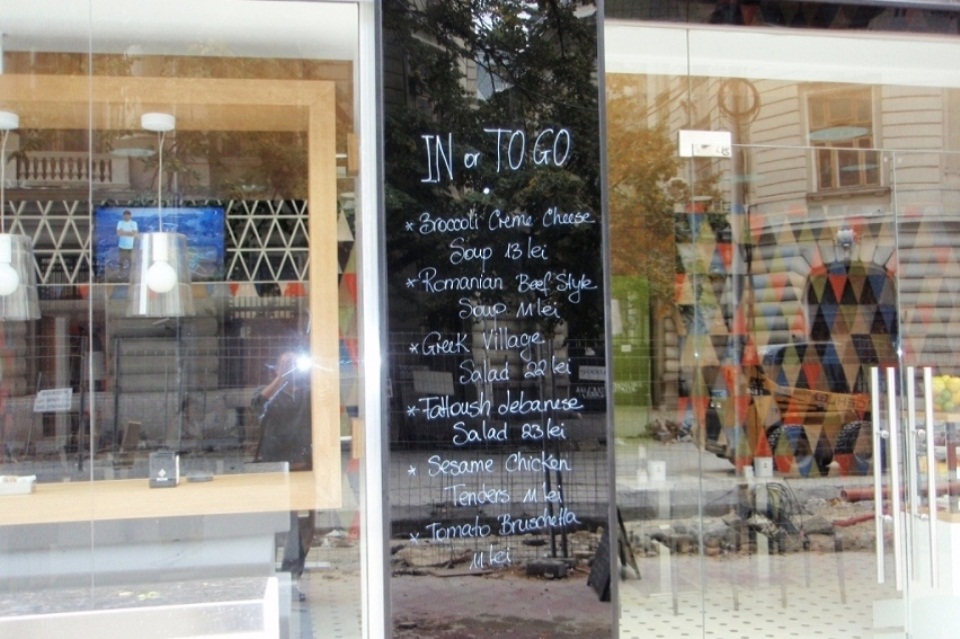 IN or TO GO
* Broccoli Creme Cheese
Soup 13 lei
* Romanian Beef Style
Soup 11 lei
* Greek Village
Salad 22 lei
* Fattoush Lebanese
Salad 23 lei
* Sesame Chicken
Tenders 11 lei
* Tomato Bruschetta
11 lei